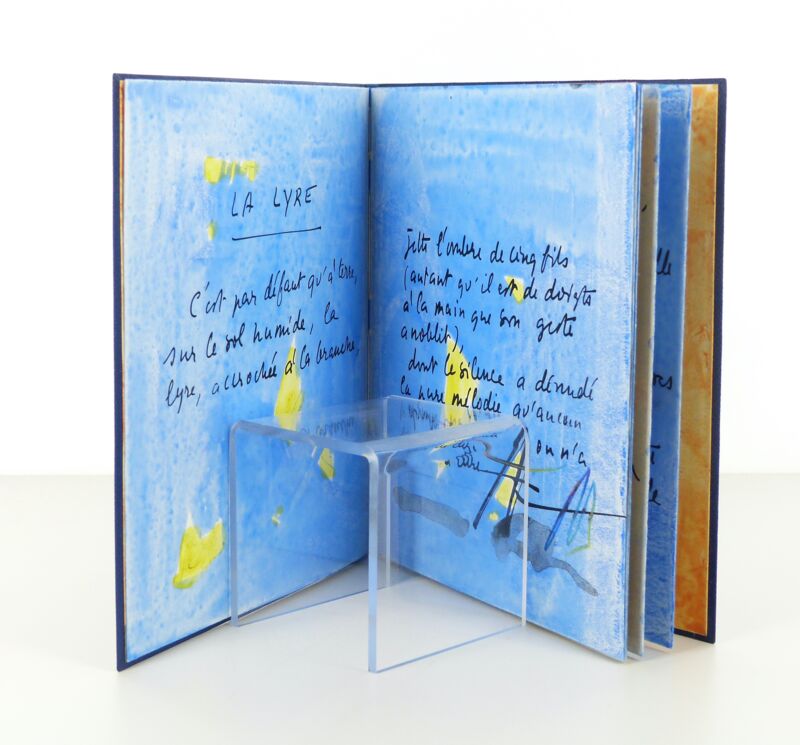 LA LYRE
C'est par défaut qu'à terre,
sur le sol humide, la
lyre, accrochée à la branche,
jette l'ombre de cinq fils
(autant qu'il est de doigts
à la main que son geste
anoblit),
dont le silence a dénudé
la pure mélodie qu'aucun
on n'a